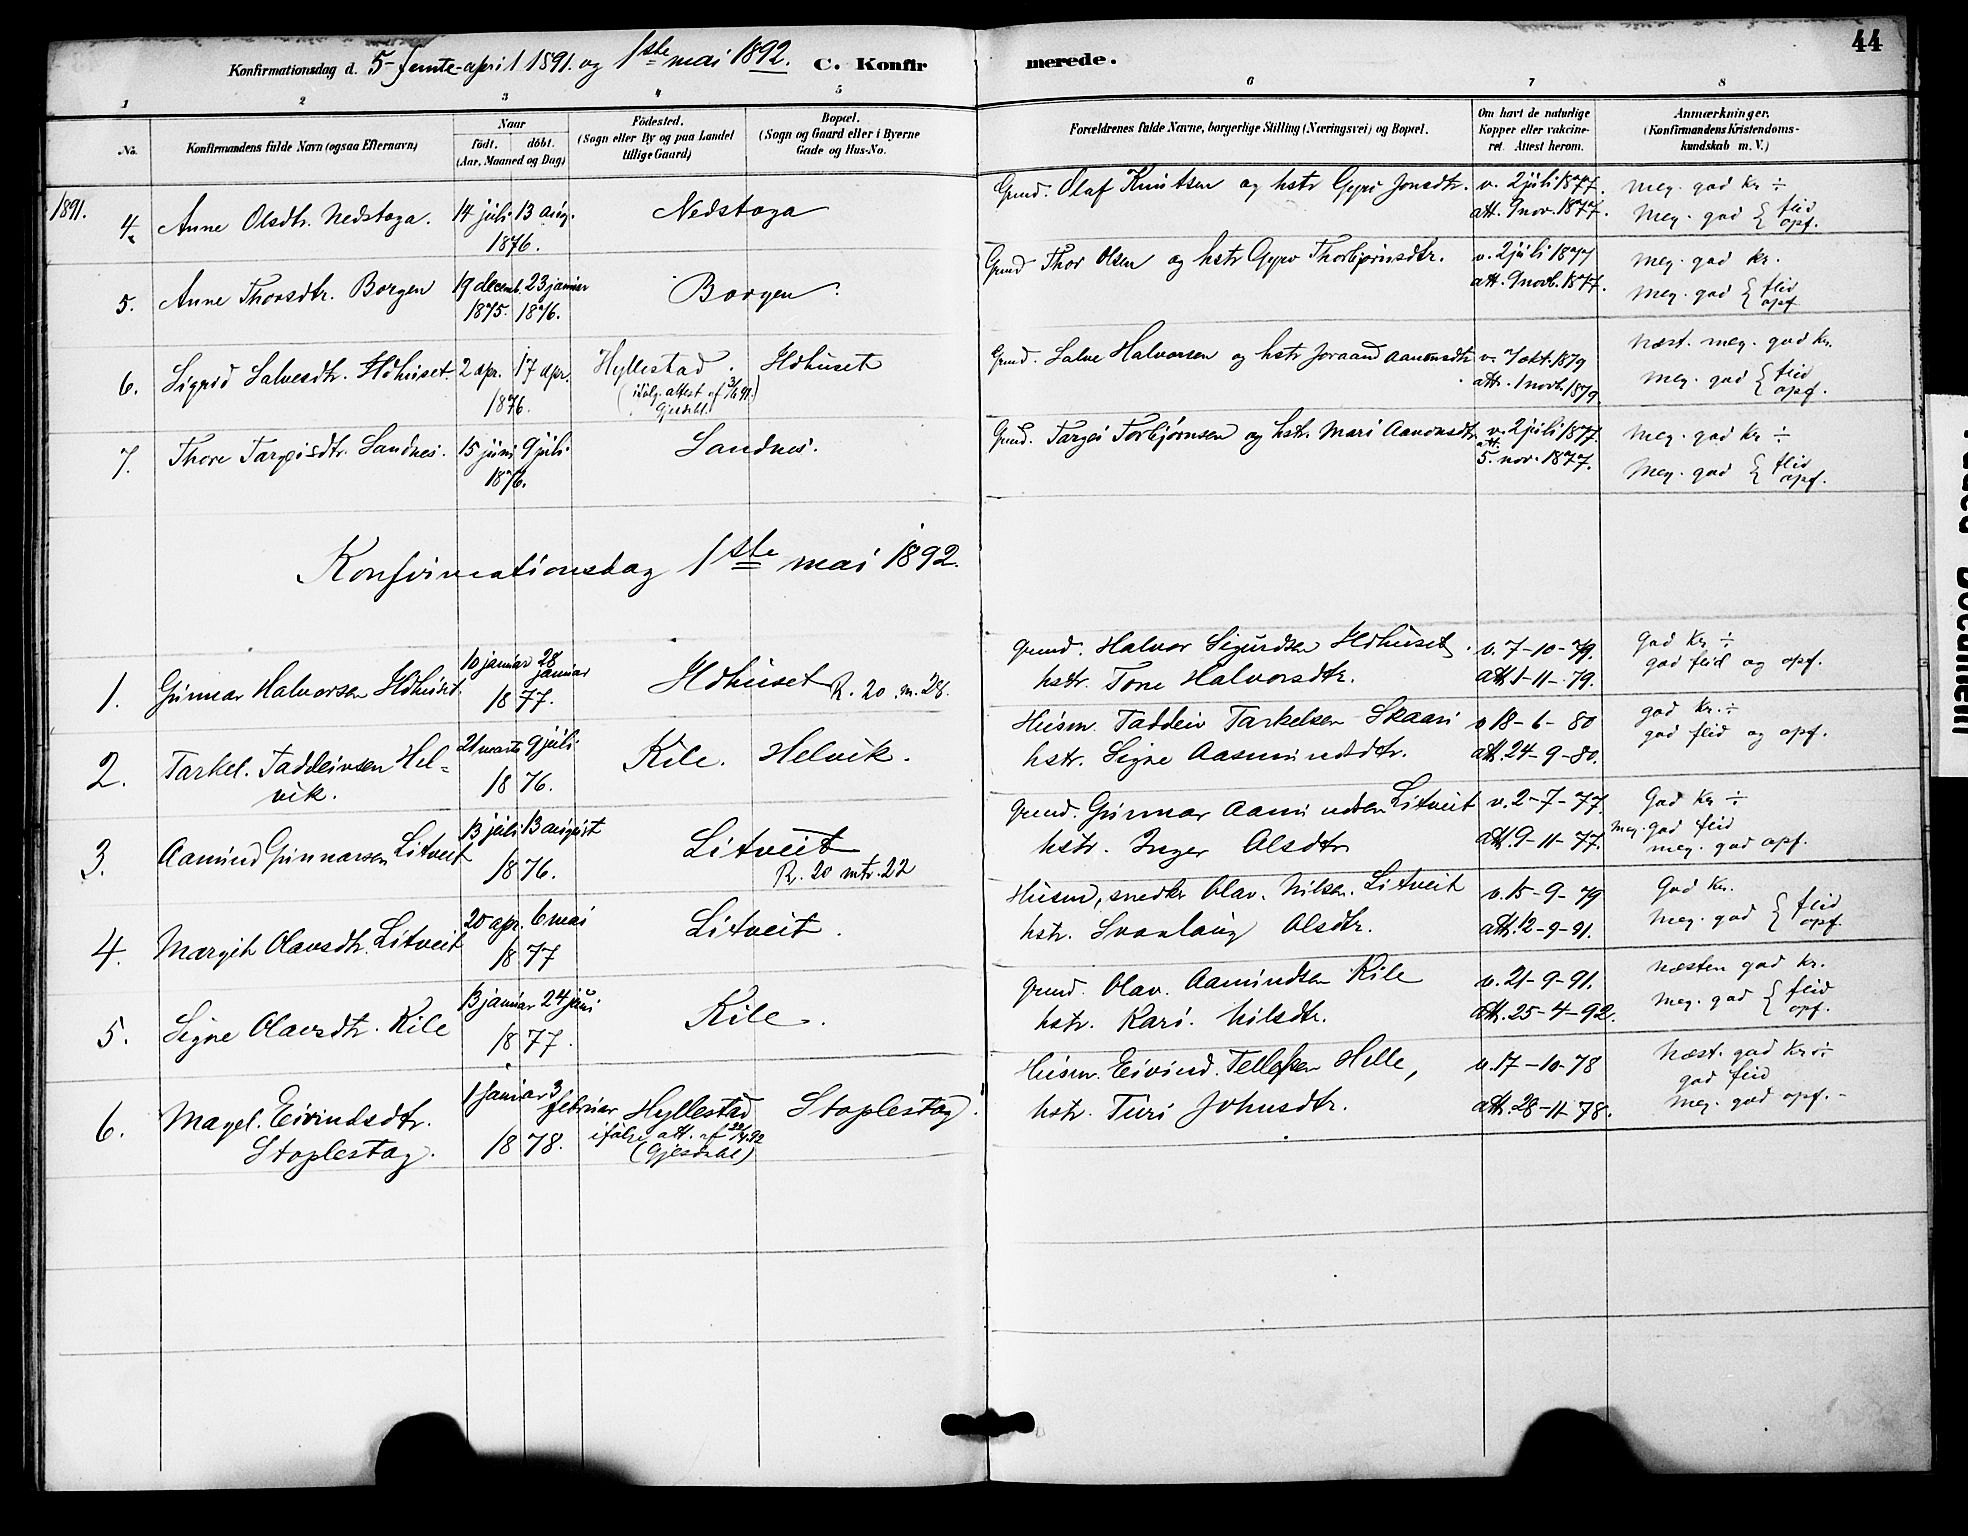 44
Konfirmationsdag d. 5-femte april 1891. og 1ste mai 1892. C. Konfirmerede.
1 2 3 4 5 6 7 8
No. Konfirmandens fulde Navn (ogsaa Efternavn) Naar födt. döbt. (Aar, Maaned og Dag) Födested. (Sogn eller By og paa Landet tillige Gaard) Bopæl. (Sogn og Gaard eller i Byerne Gade og Hus-No. Forældrenes fulde Navne, borgerlige Stilling (Næringsvei) og Bopæl. Om havt de naturlige Kopper eller vakcineret. Attest herom. Anmærkninger. (Konfirmandens Kristendomskundskab m. V.)
1891.
4. Anne Olsdtr. Nedstoga. 14 juli 13 aug. 1876. Nedstoga Grund. Olaf Knutsen og hstr Gyro Jonsdtr. v. 2 juli 1877. att. 9 nov. 1877. meg. god kr ÷ meg. god { flid opf.
5. Anne Thorsdtr. Borgen 19 decemb. 1875. 23 januar 1876. Borgen. Grund Thor Olsen og hstr Gyro Thorbjørnsdtr. v. 2 juli 1877 att. 9 novb. 1877. meg. god kr. meg. god { flid opf
6. Sigrid Salvesdtr. Hdhuset. 2 apr. 17 apr. 1876. Hyllestad. (ifølg. attest af Gjesdal) Hdhuset Grund. Salve Halvorsen og hstr Joraand Aanonsdtr v. 7 okt. 1879 att. 1 novb. 1879. næst. meg. god kr. meg. god { flid opf.
7. Thore Targeisdtr. Sandnes. 15 juni 9 juli 1876. Sandnes. Grund. Targei Torbjørnsen og hstr. Mari Aanonsdtr v. 2 juli 1877. att. 5. nov. 1877. meg. god kr ÷ meg. god { flid opf.
Konfirmationsdag 1ste mai 1892.
1. Gunnar Halvorsen Hdhuset. 10 januar 28 januar 1877. Hdhuset R. 20 m. 28. Grund. Halvor Sigurdsen Hdhuset. hstr. Tone Halvorsdtr. v. 7-10-79. att. 1-11-79. god kr ÷ god flid og opf.
2. Tarkel. Taddeivsen Helvik. 21 marts 9 juli 1876. Kile. Helvik. Husm. Taddeiv Tarkelsen Skaar hstr. Signe Aasmundsdtr. v 18-6-80 att. 24-9-80. god kr. ÷ god flid og opf.
3. Aamund Gunnarsen Litveit 13 juli 13 august 1876. Litveit R. 20 mtr. 22 Grund. Gunnar Aamundsen Litveit hstr. Inger Olsdtr v. 2-7-77. att. 9-11-77. God kr ÷ meg. god flid meg. god opf.
4. Margit Olavsdtr. Litveit 20 apr. 6 mai 1877 Litveit. Husm, snedker Olav. Nilsen. Litveit hstr. Svanlaug Olsdtr. v. 15-9-79 att. 12-9-91. God kr. meg. god { flid opf.
5. Signe Olavsdtr. Kile 13 januar 24 juni 1877. Kile. Grund. Olav. Aamundsen Kile hstr. Kari. Nilsdtr. v. 21-9-91. att. 25-4-92. næsten god kr. meg. god { flid opf.
6. Magel. Eivindsdtr. Stoplestog. 1 januar 3 februar 1878. Hyllestad ifølge att. af 22/4 92 (Gjesdahl) Stoplestog. Husm. Eivind. Tellefsen Helle, hstr. Turi Johnsdtr. v. 17-10-78 att. 28-11-78. næst. god kr ÷ god flid meg. god opf.